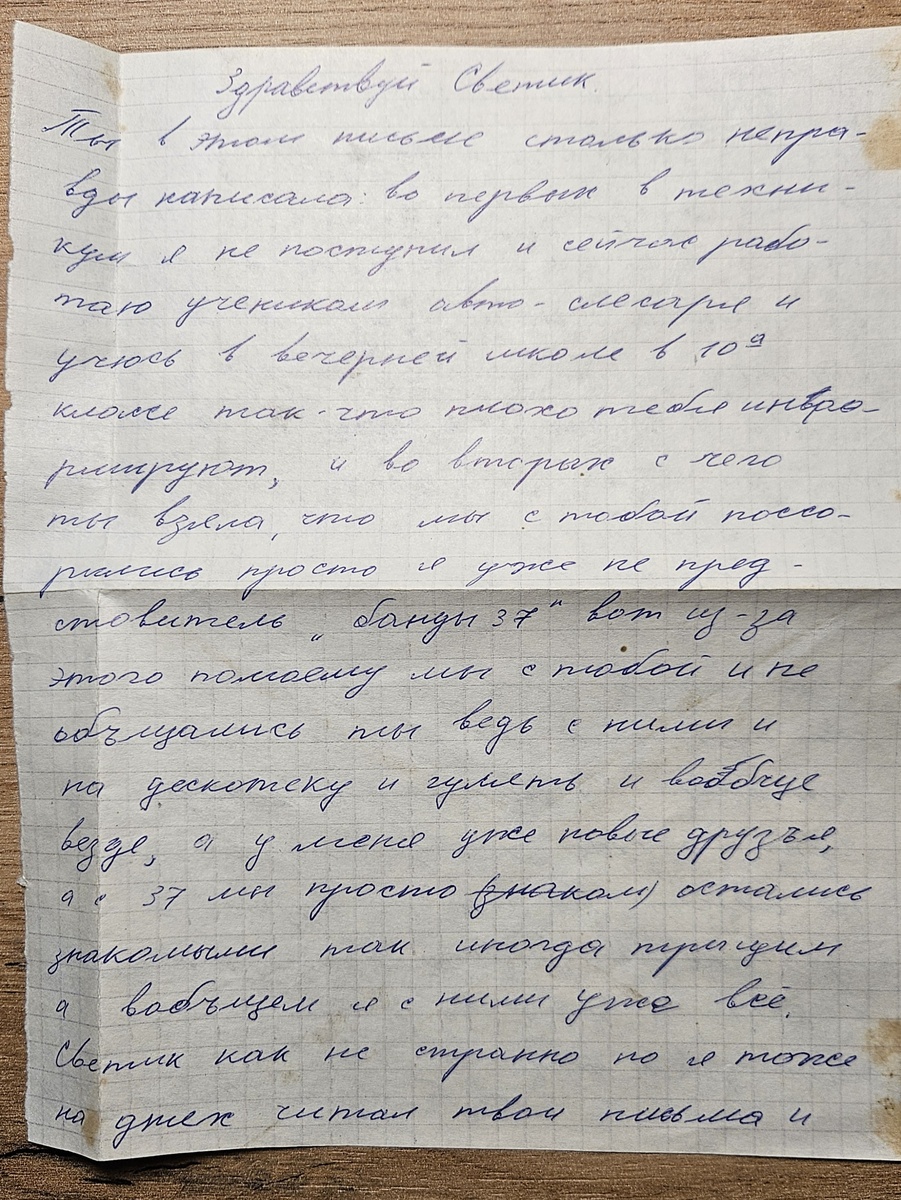 Здравствуй Светик.
Ты в этом письме столько непра-
вды написала: во первых в техни-
кум я не поступил и сейчас рабо-
таю учеником авто-слесаря и
учюсь в вечерней школе в 10а
классе так-что плохо тебя инфо-
рмируют, и во вторых с чего
ты взяла, что мы с тобой поссо-
рились просто я уже не пред-
ставитель "банды 37" вот из-за
этого помоему мы с тобой и не
объщались ты ведь с ними и
на дескотеку и гулять и вообще
везде, а у меня уже новые друзья,
а с 37 мы просто (знаком) остались
знакомыми так иногда
а вобъщем я с ними уже всё.
Светик как не странно но я тоже
на днех читал твои письма и